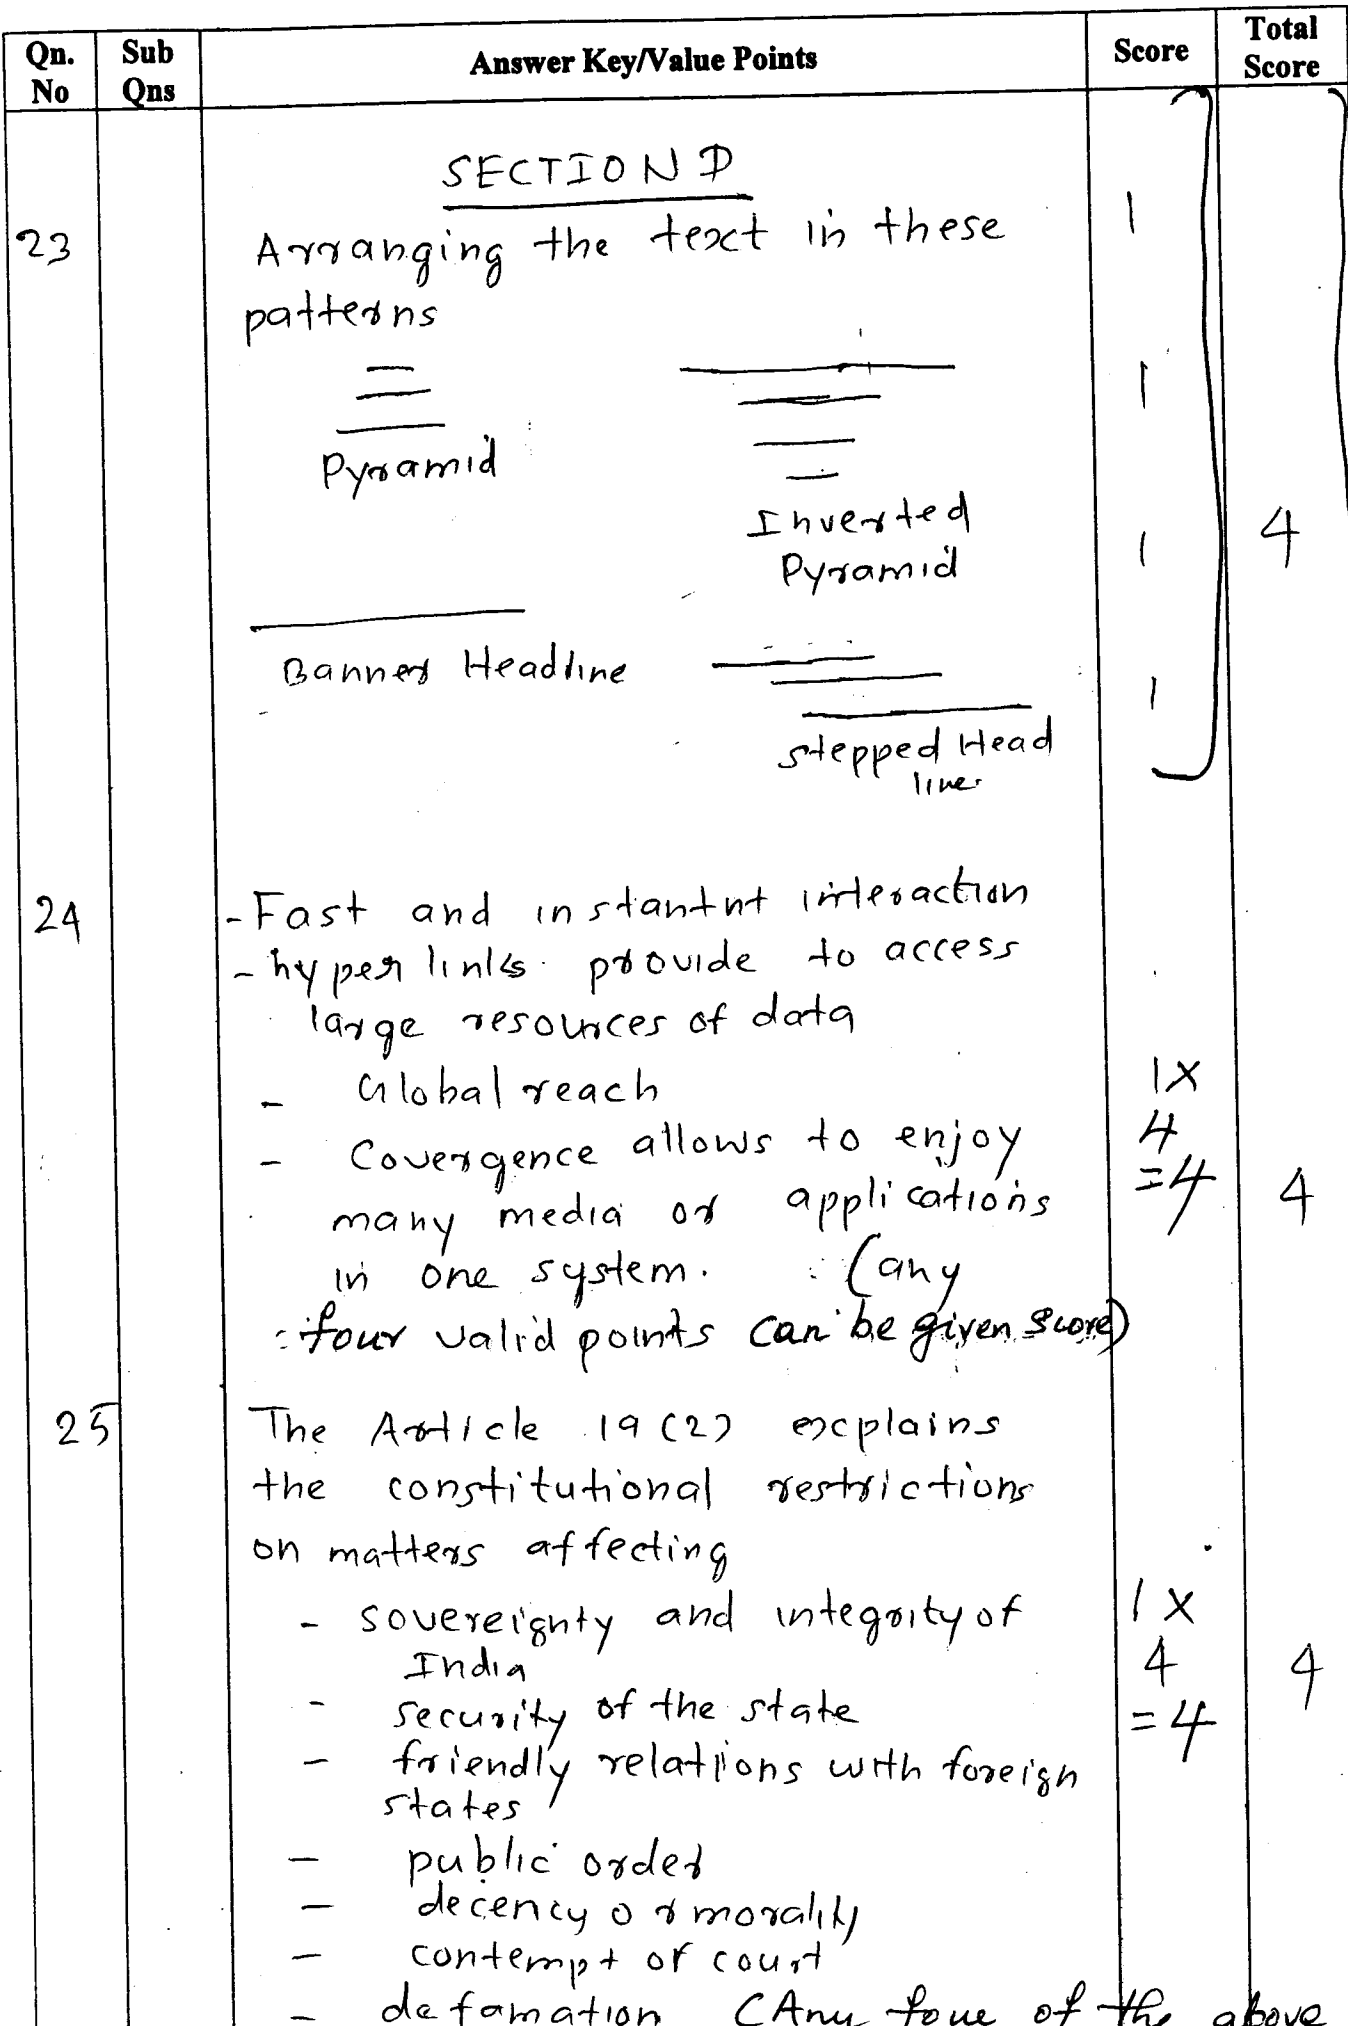 Qn. No Sub Qns Answer Key/Value Points Score Total Score
SECTION D
23 Arranging the text in these 1
patterns
1
Pyramid
Inverted
Pyramid 1 4
Banner Headline 1
stepped Head
line.
24 - Fast and instantnt interaction
- hyper links provide to access
large resources of data
- Global reach 1x
- Covergence allows to enjoy 4
many media or applications =4 4
in one system. (any
four valid points can be given score)
25 The Article 19(2) explains
the constitutional restrictions
on matters affecting
- sovereignty and integrity of 1x
India 4 4
- security of the state =4
- friendly relations with foreign
states
- public order
- decency or morality
- contempt of court
- defamation (Any four of the above